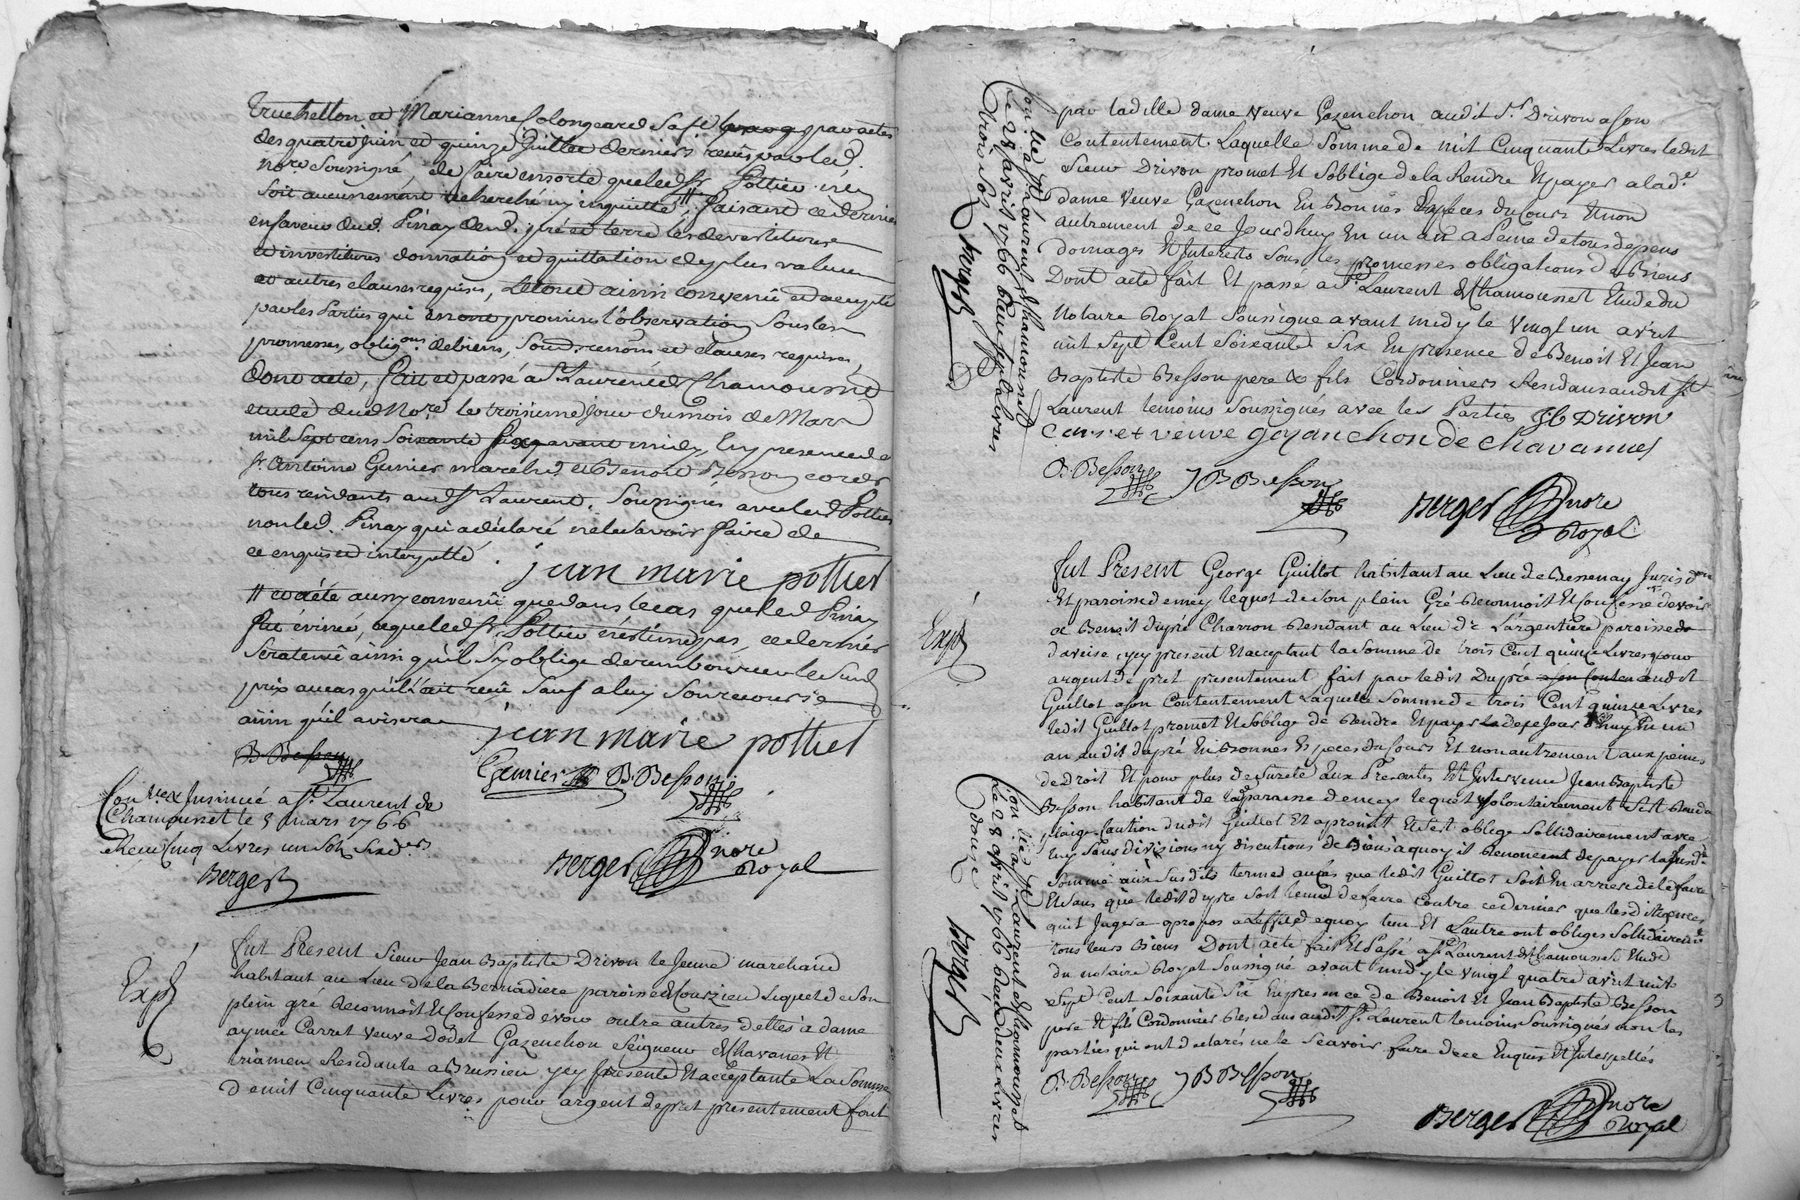 truchetton et Marianne Colongeard sa fe par actes
des quatre juin et quinze Juillet derniers recus par led.
nore. Soussigné, de faire ensorte que led Sr. Pottier n'en
soit aucunement recherché ny inquietté, faisant ce dernier
en faveur dud. Pinay dud. pré et terre les devestitures
et investitures donnation et quittation de plus value
et autres clauses requises, Le tout ainsi convenû et accepté
par les Parties qui en ont promis l'observation sous les
promesses, obligons. de biens, soumd. renons et clauses requises,
dont acte, fait et passé a St Laurent de Chamousset
etude dud Nore le troisieme jour du mois de Mars
mil sept cens soixante six avant midy, En presence de
sr. Antoine Genier march. et Benoit Besson cordr
tous residants aud St Laurent. Soussignés avec led Pottier
non led. Pinay qui a déclaré ne le savoir faire de
ce enquis et interpellé.
jean marie pottier
# et a été aussy convenû que dans le cas que led Pinay
fut évincé, lequel led Sr. Pottier n'estime pas, ce dernier
sera tenû ainsi qu'il s'y oblige de rembourser le susd
prix au cas qu'il l'ait reçû sauf a luy son recours
ainsi qu'il avisera
jean marie pottier
B Besson
Genier B. Besson
Con lé & Insinué a St. Laurent de
Chamousset le 5 mars 1766
Receu cinq Livres un sol six drs
Berger
Berger nore
Royal
Exp
Fut Present Sieur Jean Baptiste Drivon le Jeune marchand
habitant au Lieu de la Bernadiere paroisse lequel de son
plein gré Reconnoit Et Confesse devoir outre autres dettes à dame
aymée Carret veuve d'odet Gazenchon Seigneur de Chavanes Et
triamen Residante a Brussieu ycy presente Et acceptante La Somme
de mil Cinquante Livres pour argent de pret presentement fait
par ladite dame veuve Gazenchon audit Sr. Drivon a son
Contentement Laquelle Somme de mil Cinquante Livres ledit
Sieur Drivon promet Et s'oblige de la Rendre Et payer a lade.
dame veuve Gazenchon En Bonnes Especes du Cours Et non
autrement de ce Jourdhuy En un an a Peine de tous depens
domages Et Interets Sous les promesses obligations de Biens
Dont acte fait Et passé a St. Laurent de Chamousset Etude du
Notaire Royal Soussigne avant midy le Vingt un avril
mil Sept Cent Soixante Six En presence de Benoit Et Jean
Baptiste Besson pere & fils Cordonniers Residans audit St
Laurent temoins Soussignés avec les Parties Jb Drivon
Carret veuve gazanchon de chavannes
B. Besson J B Besson
Berger nore
Royal
Con. lé a St Laurent de Chamousset
le 28 avril 1766 Receu sept Livres
trois sols
Berger
Exp
Fut Present George Guillot habitant au Lieu de Bessenay Jurisdon
Et paroisse d'emey lequel de son plein Gré Reconnoit Et Confesse devoir
a Benoit dupré Charron Residant au Lieu de L'argentiere paroisse
d'aveise ycy present Et acceptant la Somme de trois Cent quinze Livres pour
argent de pret presentement fait par ledit Dupré a son Conten audit
Guillot a son Contentement Laquelle Somme de trois Cent quinze Livres
ledit Guillot promet Et s'oblige de Rendre Et payer de ce Jourdhuy En un
an audit dupré En Bonnes Especes du Cours Et non autrement aux peines
de Droit Et pour plus de Sureté aux Presentes Est Intervenu Jean Baptiste
Besson habitant de lade paroisse d'emey lequel volontairement S'est Rendu
plaige Caution dudit Guillot Et a promis Et S'est obligé Sollidairement avec
luy Sans divisions ny discutions de Biens à quoy il Renonce de payer la susde.
Somme aux Susdits termes au cas que ledit Guillot Soit En arriere de le faire
Et Sans que ledit dupré Soit tenu de faire Contre ce dernier que les diligences
qu'il Jugera apropos a L'effet de quoy l'un Et L'autre ont obligés Sollidairemt
tous leurs Biens Dont acte fait Et Passé a St. Laurent de Chamousset Etude
du notaire Royal Soussigné avant midy le vingt quatre avril mil
Sept Cent Soixante Six En presence de Benoit Et Jean Baptiste Besson
pere Et fils Cordonniers Residans audit St. Laurent temoins Soussignés non les
parties qui ont declarés ne le Scavoir faire de ce Enquis Et Interpellés
B. Besson J B Besson
Berger nore
Royal
Con. lé a St Laurent de Chamousset
le 28 avril 1766 Receu deux Livres
douze
Berger